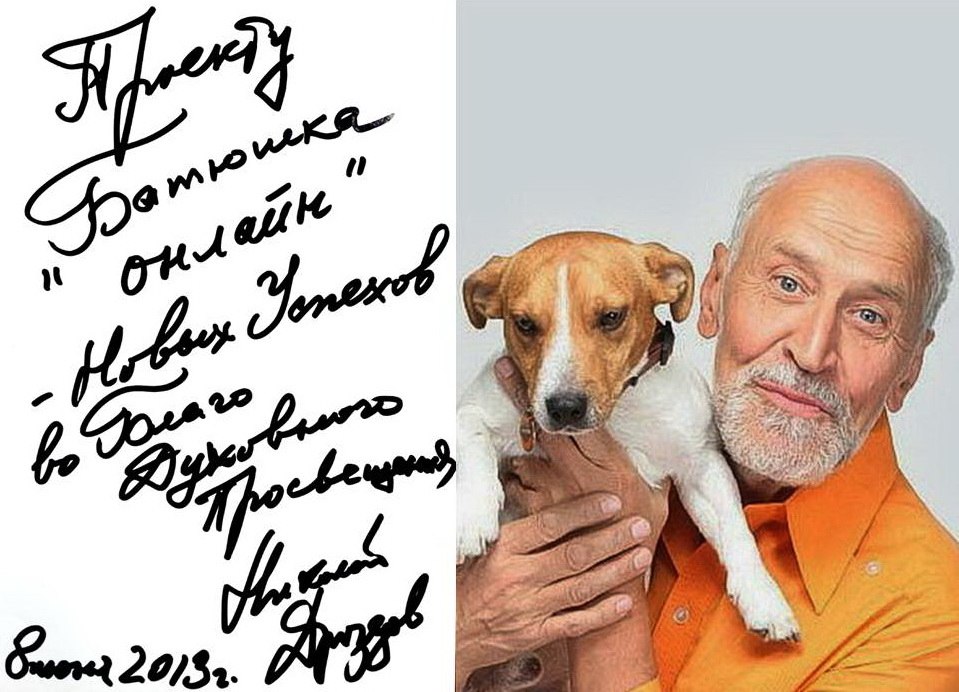 Проекту
Батюшка
" онлайн "
- Новых Успехов
во Благо
Духовного
Просвещения
Николай
Дроздов
8 июня 2013г.